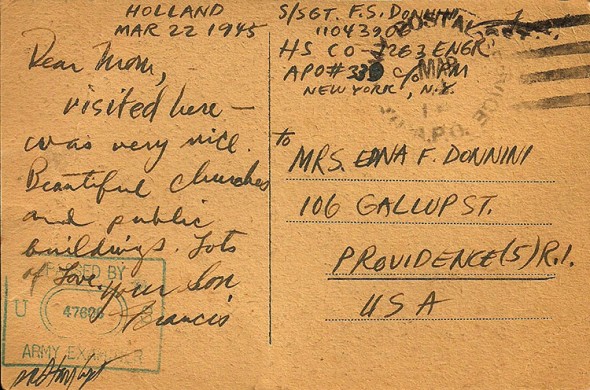 HOLLAND
MAR 22 1945
Dear Mom,
visited here —
was very nice.
Beautiful churches
and public
buildings. Lots
of Love.
your Son
Francis
PASSED BY
U 47606 S
ARMY EXAMINER
S/SGT. F.S. DONNINI
HS CO-1263 ENGR
APO# 339 C/O PM
NEW YORK, N.Y.
POSTAL SERVICE
MAR
A.P.O.
to
MRS. EDNA F. DONNINI
106 GALLUP ST.
PROVIDENCE (5) R.I.
USA